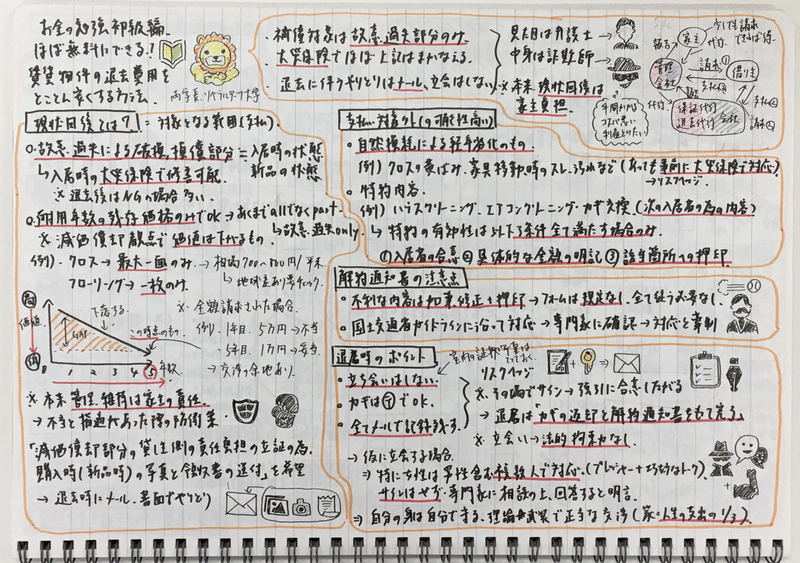 お金の勉強初級編
ほぼ無料にできる!
賃貸物件の退去費用を
とことん安くする方法
両学長・リベラルアーツ大学
・補償対象は故意過失部分のみ
・火災保険でほぼ上記はまかなえる。
・退去に伴うやりとりはメール、立会はしない
見た目は弁護士
中身は詐欺師
※本来、現状回復は
家主負担
少しでも請求
できれば得
家主
管理
会社
借り主
請求
代行
保証代行
退去代行
会社
現状回復とは? = 対象となる範囲(支払)
○故意過失による破損、損傷部分=入居時の状態
新品の状態
↳入居時の火災保険で修善可能
※退去後はNGの場合多い
○耐用年数の残存価格のみでOK→あくまでallでなくpart
↳故意過失only
※減価償却観点で価値は下がるもの
例)・クロス→最大一面のみ→相場700〜800円/平米
↳地域差あり要チェック
フローリング→一枚のみ
高
価値
低
下落する
この時点のもの
0 1 2 3 4 5 年数
※全額請求された場合
例)1年目、5万円→不当
5年目、1万円→妥当
→交渉の余地あり
※本来管理・維持は家主の責任
→不当と指摘があった際の防衛策
「減価償却部分の貸し側の責任負担の立証の為、
購入時(新品時)の写真と領収書の送付」を希望
→退去時にメール、書面でやりとり
支払い対象外(の可能性高い)
・自然損耗による経年劣化のもの
例)クロスの黄ばみ、家具移動時のスレ、汚れなど(あっても事前に火災保険で対応)
→リスクヘッジ
・特約内容
例)ハウスクリーニング・エアコンクリーニング・カギ交換(次の入居者の為の内容)
↳特約の有効性は以下3条件全て満たす場合のみ
①入居者の合意②具体的な金額の明記③該当箇所への押印
解約通知書の注意点
・不利な内容は加筆修正+押印→フォームは規定なし、全て従う必要なし
・国土交通省ガイドラインに沿って対応→専門家に確認→対応と牽制
退居時のポイント
リスクヘッジ
・立ち会いはしない
・カギは〒でOK
・全てメールで記録残す
※その場でサイン→強引に合意したがる
→退居は「カギの返却と解約通知書をもって完了」
※立会い→法的拘束力なし
→仮に立会する場合
⇒特に女性は男性含む複数人で対応(プレッシャー+巧妙なトーク)
サインはせず、専門家に相談の上、回答すると明言
⇒自分の身は自分で守る。理論武装で正当な交渉(家は人生の支出の1/3)